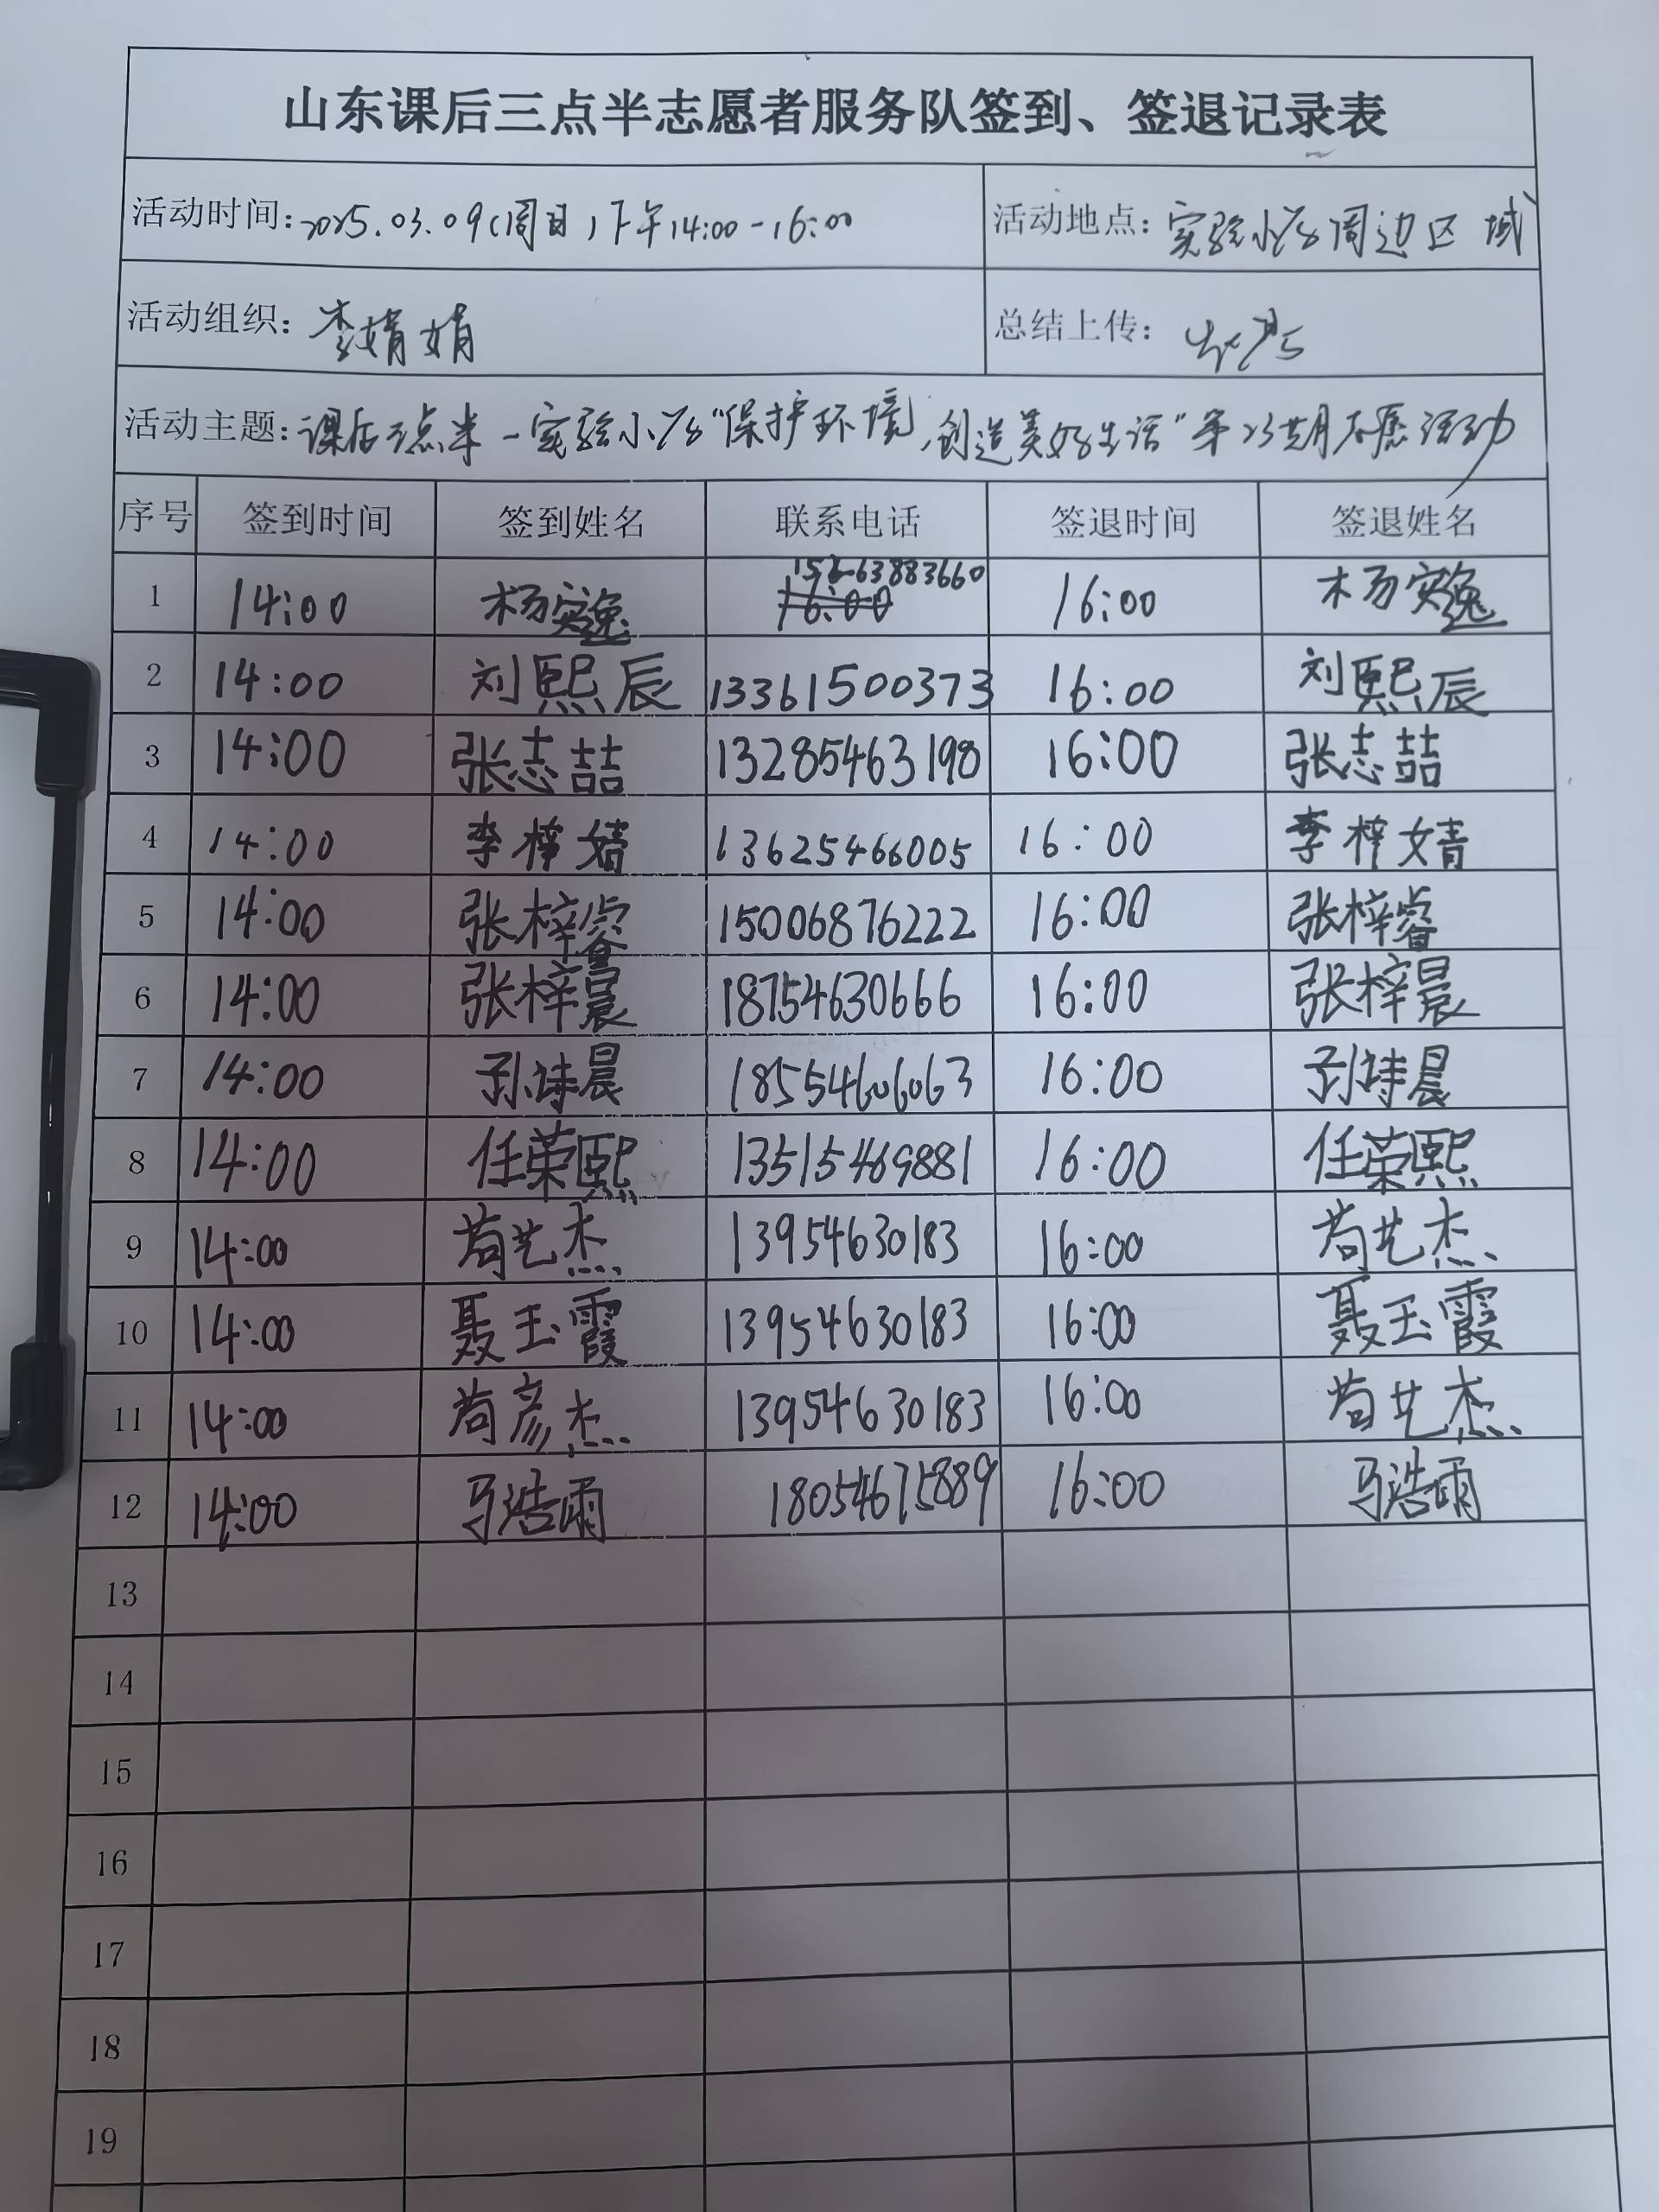 山东课后三点半志愿者服务队签到、签退记录表
活动时间：2025.03.09（周日）下午14:00-16:00 活动地点：实验小学周边区域
活动组织：李婧婧 总结上传：
活动主题：课后三点半-实验小学“保护环境，创造美好生活”第23期志愿活动
序号 签到时间 签到姓名 联系电话 签退时间 签退姓名
1 14:00 杨奕逸 16:00 16:00 杨奕逸
2 14:00 刘熙辰 13361500373 16:00 刘熙辰
3 14:00 张志喆 13285463198 16:00 张志喆
4 14:00 李梓婧 13625466005 16:00 李梓婧
5 14:00 张梓睿 15006876222 16:00 张梓睿
6 14:00 张梓晨 18754630666 16:00 张梓晨
7 14:00 孙诗晨 18554606063 16:00 孙诗晨
8 14:00 任荣熙 13515469881 16:00 任荣熙
9 14:00 苟艺杰 13954630183 16:00 苟艺杰
10 14:00 聂玉霞 13954630183 16:00 聂玉霞
11 14:00 苟彦杰 13954630183 16:00 苟艺杰
12 14:00 马浩雨 18054675889 16:00 马浩雨
13
14
15
16
17
18
19